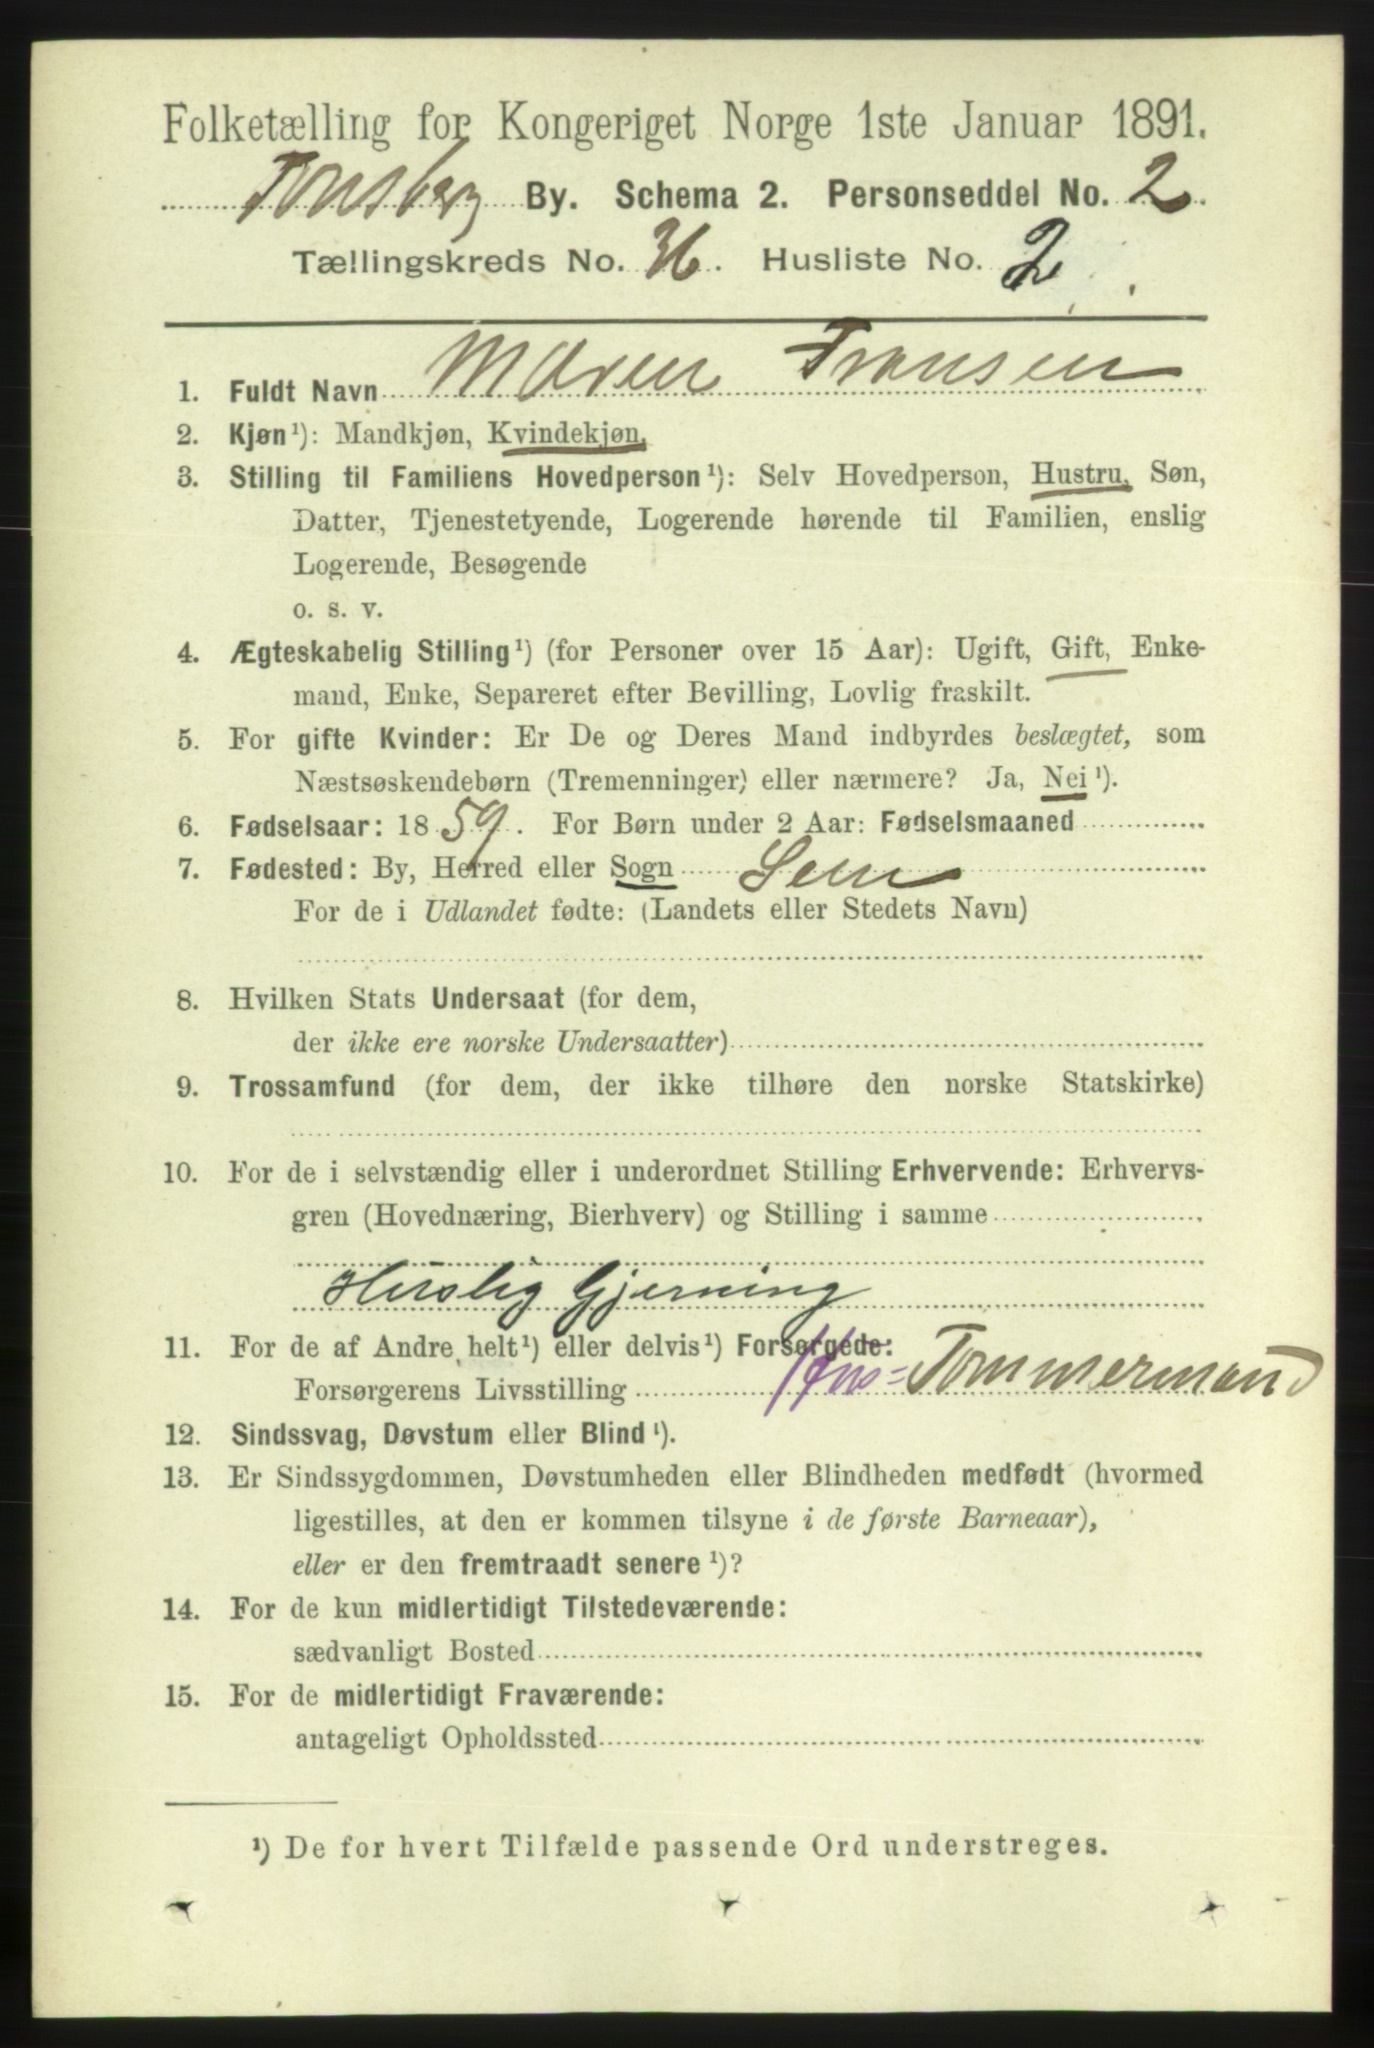 Folketælling for Kongeriget Norge 1ste Januar 1891.
Tønsberg By. Schema 2. Personseddel No. 2
Tællingskreds No. 36. Husliste No. 2
1. Fuldt Navn Maren Fransen
2. Kjøn¹): Mandkjøn, Kvindekjøn,
3. Stilling til Familiens Hovedperson¹): Selv Hovedperson, Hustru, Søn,
Datter, Tjenestetyende, Logerende hørende til Familien, enslig
Logerende, Besøgende
o. s. v.
4. Ægteskabelig Stilling¹) (for Personer over 15 Aar): Ugift, Gift, Enke-
mand, Enke, Separeret efter Bevilling, Lovlig fraskilt.
5. For gifte Kvinder: Er De og Deres Mand indbyrdes beslægtet, som
Næstsøskendebørn (Tremenninger) eller nærmere? Ja, Nei¹).
6. Fødselsaar: 1859. For Børn under 2 Aar: Fødselsmaaned
7. Fødested: By, Herred eller Sogn Sem
For de i Udlandet fødte: (Landets eller Stedets Navn)
8. Hvilken Stats Undersaat (for dem,
der ikke ere norske Undersaatter)
9. Trossamfund (for dem, der ikke tilhøre den norske Statskirke)
10. For de i selvstændig eller i underordnet Stilling Erhvervende: Erhvervs-
gren (Hovednæring, Bierhverv) og Stilling i samme
Huslig Gjerning
11. For de af Andre helt¹) eller delvis¹) Forsørgede:
Forsørgerens Livsstilling Tømmermand
12. Sindssvag, Døvstum eller Blind¹).
13. Er Sindssygdommen, Døvstumheden eller Blindheden medfødt (hvormed
ligestilles, at den er kommen tilsyne i de første Barneaar),
eller er den fremtraadt senere¹)?
14. For de kun midlertidigt Tilstedeværende:
sædvanligt Bosted
15. For de midlertidigt Fraværende:
antageligt Opholdssted
¹) De for hvert Tilfælde passende Ord understreges.